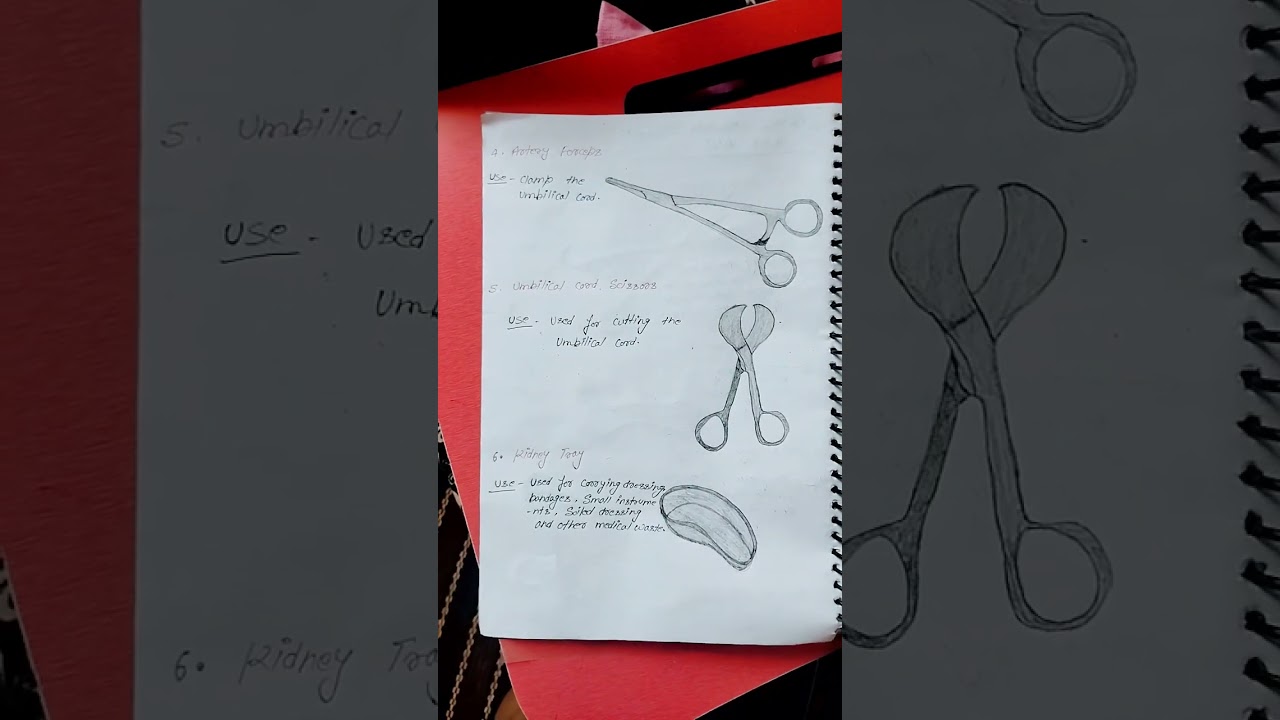 4. Artery Forceps
Use - Clamp the
Umbilical Cord.
5. Umbilical Cord Scissors
Use - Used for cutting the
Umbilical Cord.
6. Kidney Tray
Use - Used for Carrying dressing,
bandages, Small instrume
-nts, Soiled dressing
and other medical waste.
5. Umbilical
Use - Used
Umb
6. Kidney Tray